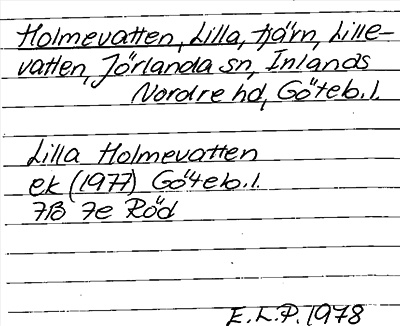 Holmevatten, Lilla, tjärn, Lille-
vatten, Jörlanda sn, Inlands
Nordre hd, Göteb.l.
Lilla Holmevatten
ek (1977) Göteb.l.
7B 7e Röd
E.L.P. 1978